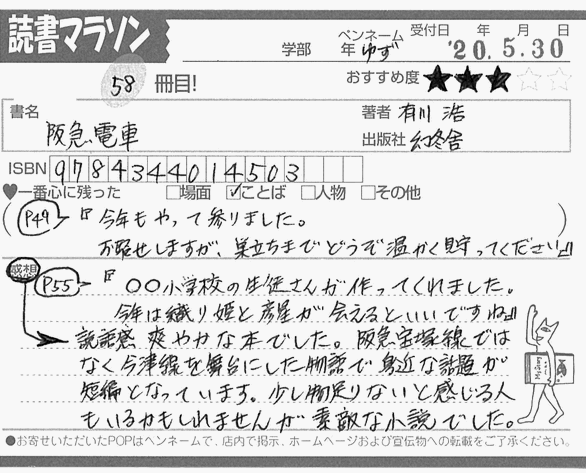 読書マラソン
学部 年 ペンネーム ゆず 受付日 年 月 日
'20.5.30
58 冊目! おすすめ度 ★★★☆☆
書名 阪急電車
著者 有川 浩
出版社 幻冬舎
ISBN 9784344014503
♥一番心に残った □場面 ☑ことば □人物 □その他
P49→『今年もやって参りました。
万視せしますが、巣立ちまでどうぞ温かく見守ってください』
感想 P55→『〇〇小学校の生徒さんが作ってくれました。
今年は織り姫と彦星が会えるといいですね』
読語感 爽やかな本でした。阪急宝塚線では
なく今津線を舞台にした物語で身近な話題が
短編となっています。少し物足りないと感じる人
もいるかもしれませんが素敵な小説でした。
●お寄せいただいたPOPはペンネームで、店内で掲示、ホームページおよび宣伝物への転載をご了承ください。